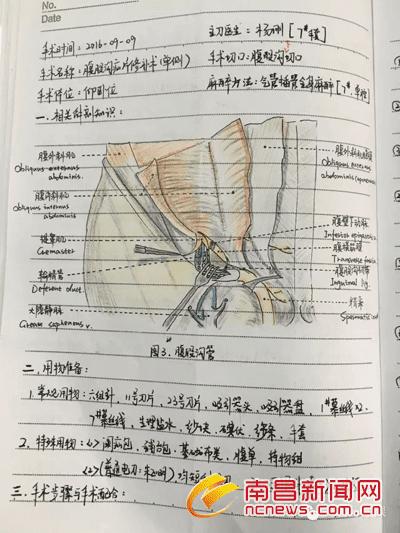 No.
Date
手术时间：2016-09-09
主刀医生：杨刚 [7#楼]
手术名称：腹股沟疝修补术(单侧)
手术切口：腹股沟切口
手术体位：仰卧位
麻醉方法：气管插管全身麻醉
一、相关解剖知识：
腹外斜肌
Obliquus externus
abdominis.
腹外斜肌腱膜
Obliquus externus
腹内斜肌
Obliquus internus
abdominis
提睾肌
Cremaster
输精管
Deferent duct
大隐静脉
Great saphenous v.
腹壁下动脉
Inferior epigastric
腹横筋膜
Transverse fascia
腹股沟韧带
Inguinal lig.
精索
Spermatic cord
图3. 腹股沟管
二、用物准备：
1. 常规用物：六组针，11号刀片，23号刀片，吸引器头，吸引器盘，1#慕丝线x2.
7#慕丝线，生理盐水，纱块，碘伏，绷条，手套
2. 特殊用物：<1> 阑疝包，铺台包，基础布类，腹单，持物钳
<2> (普通电刀：
三、手术步骤与手术配合：
南昌新闻网
ncnews.com.cn